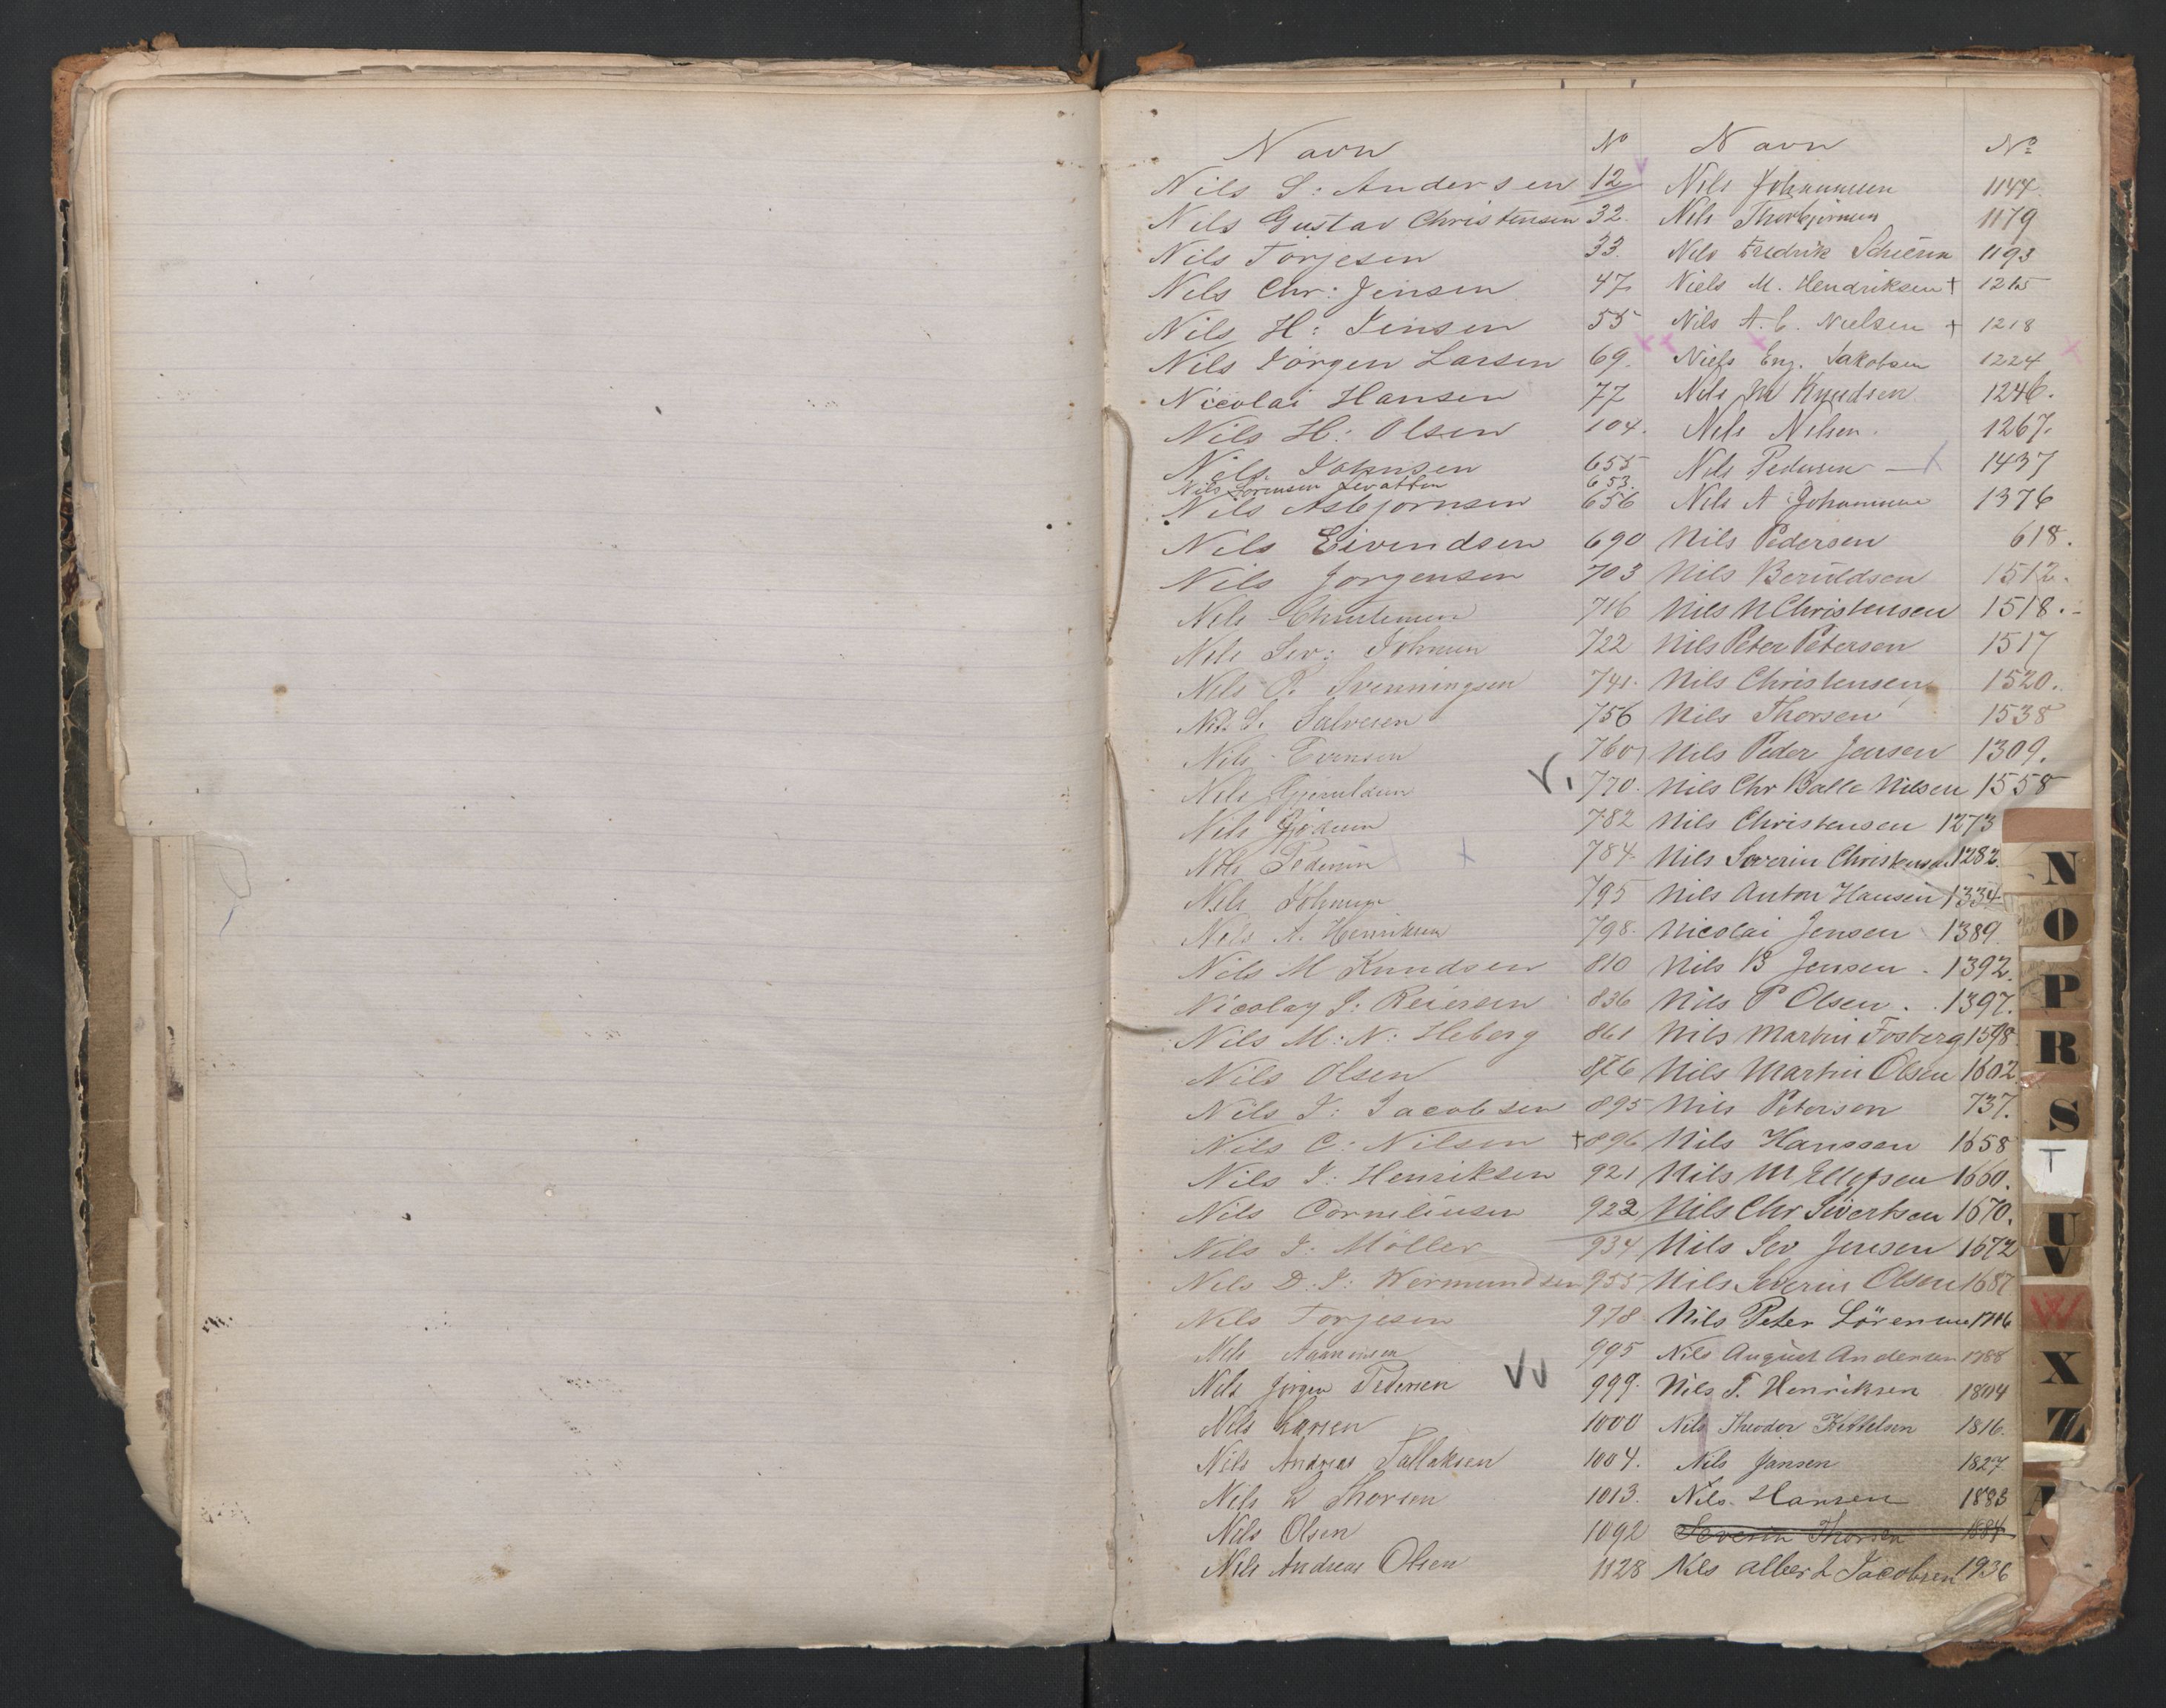 Navn No Navn No
Nils S: Andersen 12 Nils Johannesen 1144
Nils Gustav Christensen 32. Nils Thorbjörnsen 1179
Nils Torjesen 33. Nils Fredrik Schieren 1193
Nils Chr: Jensen 47. Niels M. Hendriksen + 1215
Nils H: Jensen 55 Nils A. C. Nielsen + 1218
Nils Jörgen Larsen 69. Niels Eng. Jakobsen 1224
Nicolai Hansen 77 Nils M Knudsen 1246.
Nils H: Olsen 104. Nils Nilsen. 1267.
Nils Johnsen 655 Nils Pedersen 1437
Nils Sörensen 653.
Nils Asbjörnsen 656 Nils A Johannesen 1376
Nils Eivindsen 690 Nils Pedersen 618.
Nils Jorgensen 703 Nils Beruldsen 1512.
Nils Christensen 716 Nils N Christensen 1518.-
Nils Sev: Johnsen 722 Nils Peter Petersen 1517
Nils P. Svenningsen 741. Nils Christensen 1520.
Nils S. Salvesen 756 Nils Thorsen 1538
Nils Evensen 760 Nils Peder Jensen 1309.
Nils Gjeruldsen 770. Nils Chr Balle Nilsen 1558
Nils 782 Nils Christensen 1273
Nils Pedersen 784. Nils Severin Christensen 1282.
Nils Johnsen 795 Nils Anton Hansen 1334
Nils A. Henriksen 798. Nicolai Jensen 1389.
Nils M Knudsen 810 Nils B Jensen. 1392.
Nicolay J: Reiersen 836 Nils P Olsen. 1397.
Nils M: N: Heberg 861 Nils Martin Fosberg 1598.
Nils Olsen 876 Nils Martin Olsen 1602.
Nils J: Jacobsen 895 Nils Petersen 737.
Nils C: Nilsen + 896 Nils Hanssen 1658
Nils J: Henriksen 921 Nils M Ellefsen 1660.
Nils Corneliusen 922 Nils Chr Sivertsen 1670.
Nils J: Möller 934 Nils Sev Jensen 1672
Nils D. J: Wermundsen 955 Nils Severin Olsen 1687
Nils Torjesen 978 Nils Peter Sörensen 1746
Nils Aanonsen 995 Nils August Andersen 1788
Nils Jörgen Pedersen 999. Nils T. Henriksen 1804
Nils Larsen 1000 Nils Theodor Kittelsen 1816.
Nils Andreas Tallaksen 1004. Nils Jansen 1827
Nils Thorsen 1013. Nils Hansen 1883
Nils Olsen 1092 Severin Thorsen 1884
Nils Andreas Olsen 1128 Nils Albert Jacobsen 1936
N
O
P
R
S
T
U
V
W
X
Z